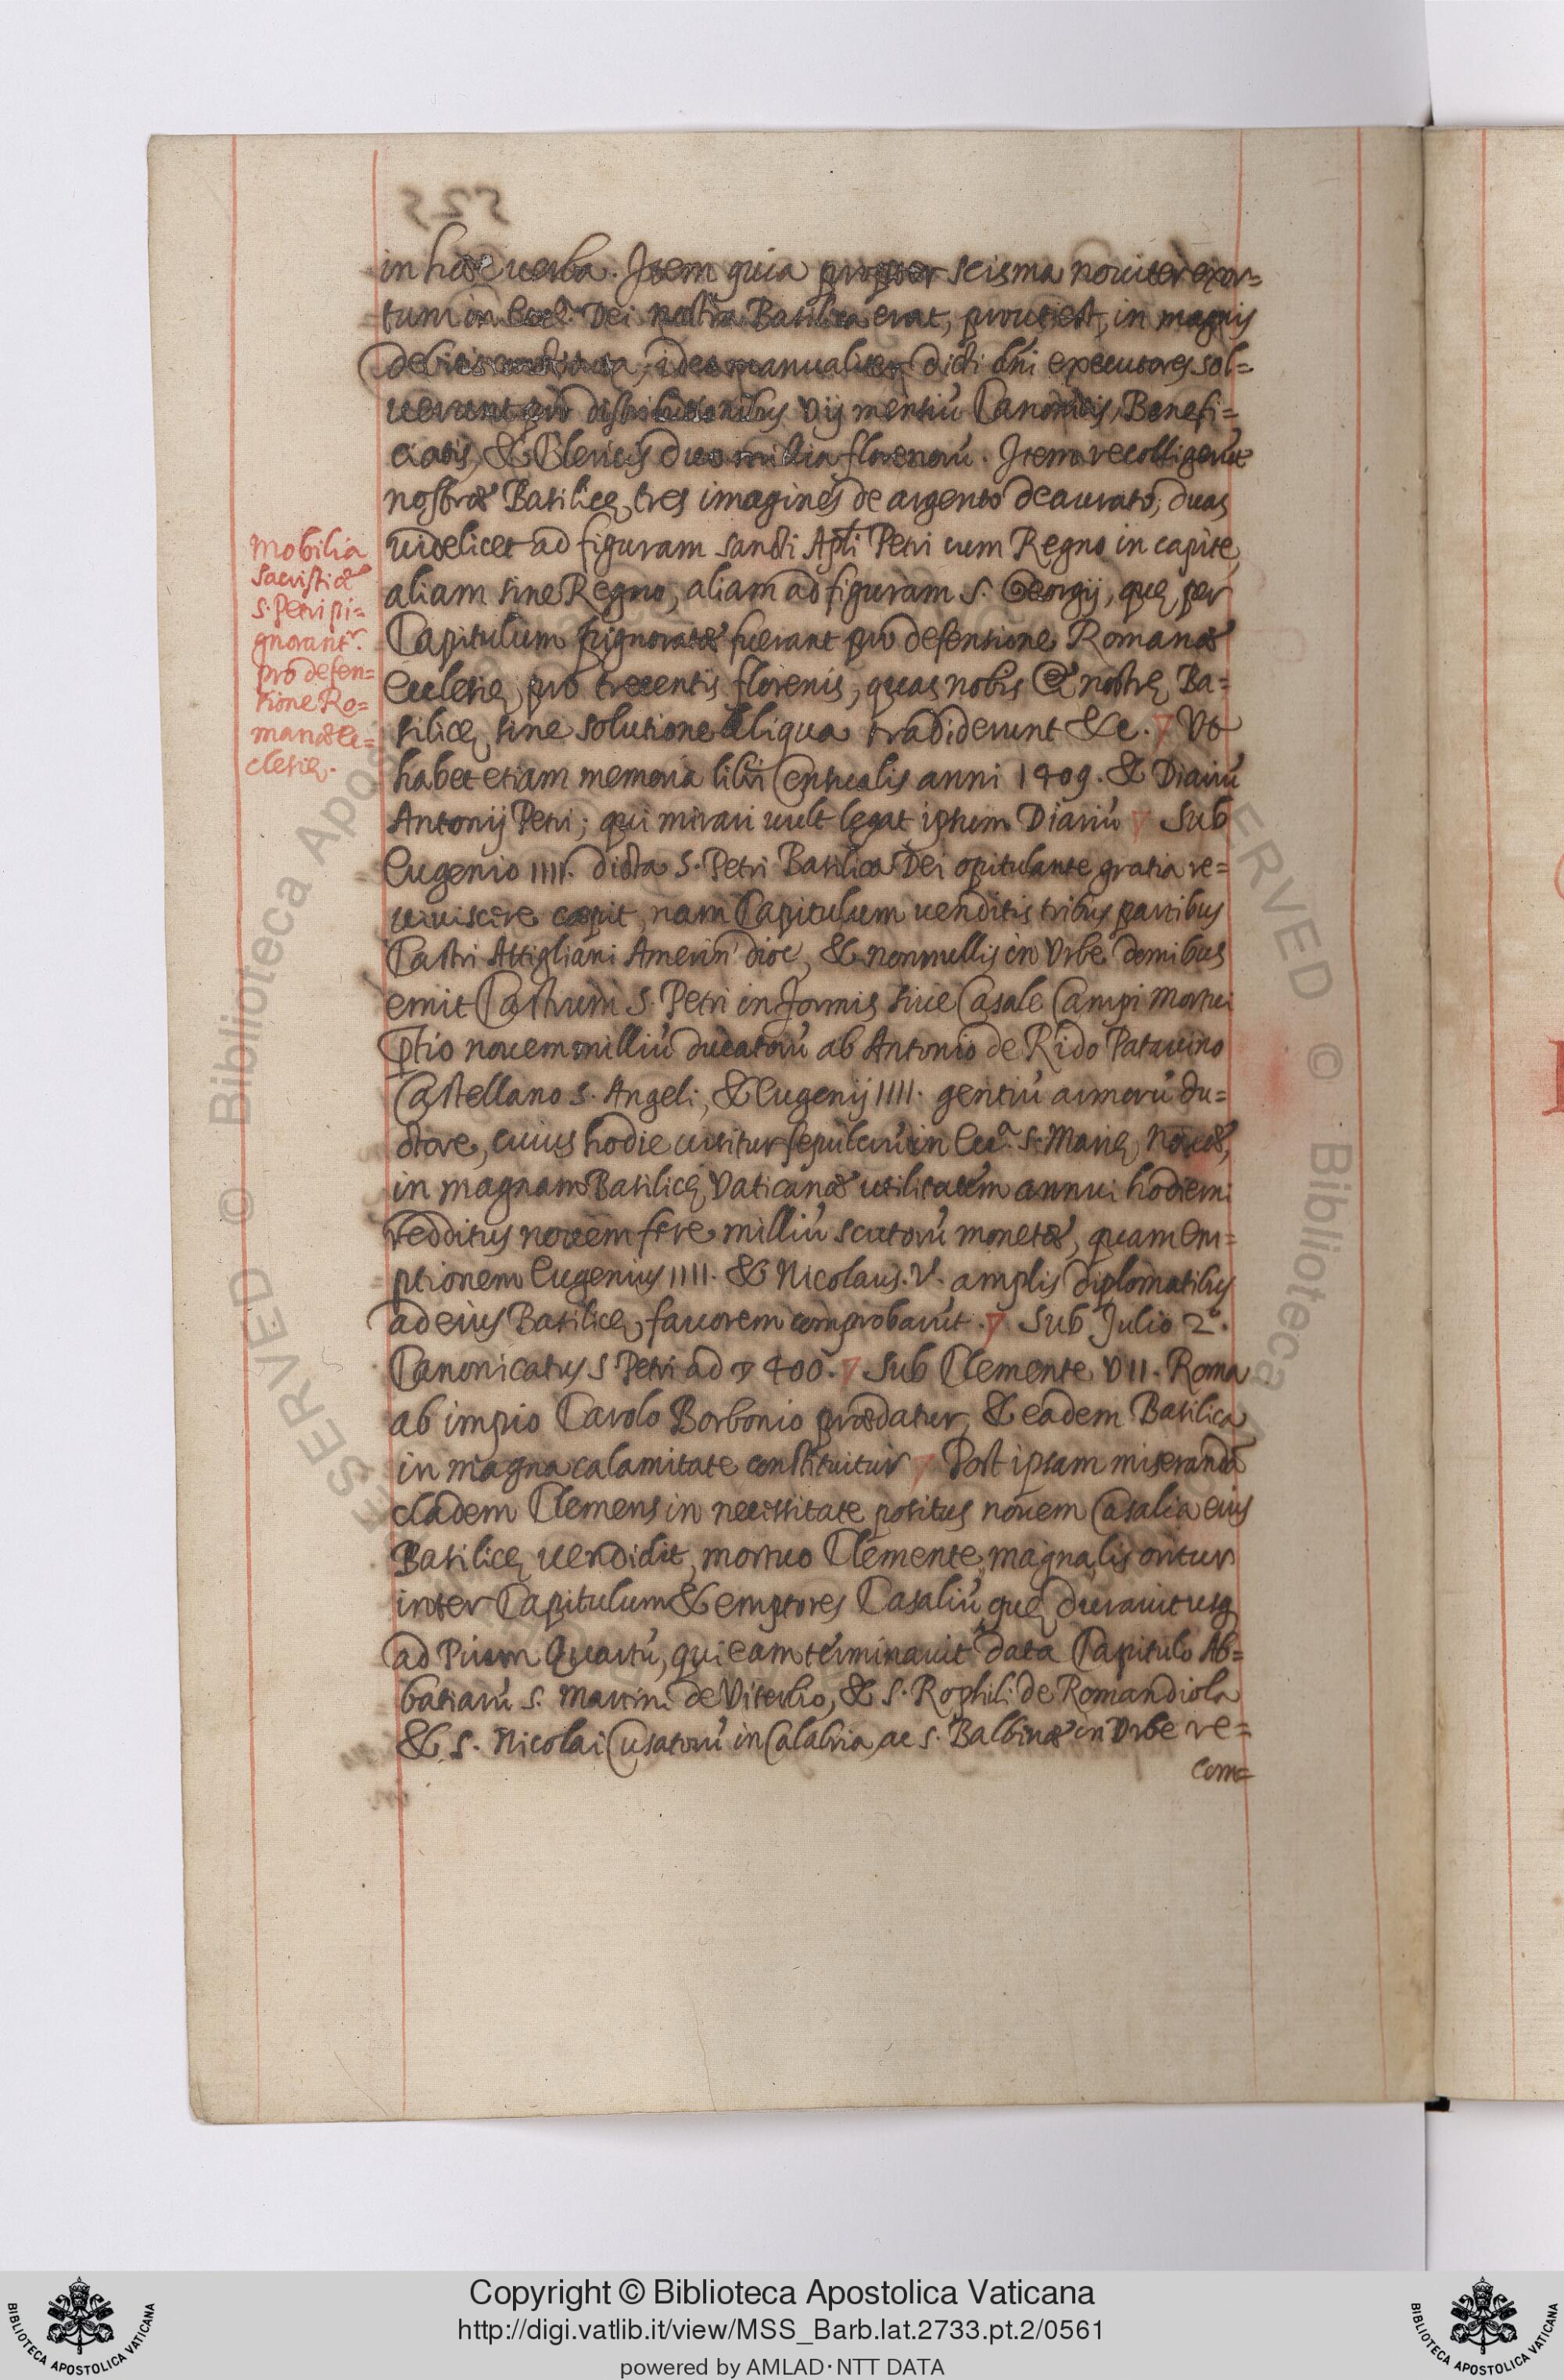 in haec uerba. Item quia propter scisma nouiter exor=
tum in Eccl. Dei nostra Basilica erat, prout est, in magnis
debitis, ideo manualiter dicti dñi executores sol=
uerunt pro distributionibus Vij mensiũ Canonicis, Benefi=
ciatis, & Clericis duo millia florenorũ. Item recolligerũt
nostrae Basilicę tres imagines de argento deaurato, duas
uidelicet ad figuram sancti Apl̃i Petri cum Regno in capite,
aliam sine Regno, aliam ad figuram S. Georgij, quę per
Capitulum pignoratae fuerant pro defensione Romanae
Ecclesię pro trecentis florenis, quas nobis & nostrę Ba=
silicę sine solutione aliqua tradiderunt &c. Vt
habet etiam memoria libri censualis anni 1409. & Diariũ
Antonij Petri; qui mirari uult legat ipsum Diariũ Sub
Eugenio IIII. dicta S. Petri Basilica Dei opitulante gratia re=
uiuiscere coepit, nam Capitulum uenditis tribus partibus
Castri Attigliani Amerin̄ dioc, & nonnullis in Vrbe domibus
emit Castrum S. Petri in Formis siue Casale Campi Mortui
ptio nouem milliũ ducatorũ ab Antonio de Rido Patauino
Castellano S. Angeli, & Eugenij IIII. gentiũ armorũ du=
ctore, cuius hodie uisitur sepulcrũ in Ecc.ª S. Marię Nouae,
in magnam Basilicę Vaticanae utilitatem annui hodierni
redditus nouem fere milliũ scutorũ monetae, quam em=
ptionem Eugenius IIII. & Nicolaus. V. amplis diplomatibus
ad eius Basilicę fauorem comprobarũt. Sub Julio 2º.
Canonicatus S Petri ad 400. Sub Clemente VII. Roma
ab impio Carolo Borbonio praedatur, & eadem Basilica
in magna calamitate constituitur Post ipsam miserandã
cladem Clemens in necissitate positus nouem Casalia eius
Basilicę uendidit, mortuo Clemente, magna lis oritur
inter Capitulum & emptores Casaliũ, quę durauit usq
ad Pium Quartũ, qui eam terminauit data Capitulo Ab=
batiarũ S. Martini de Viterbio, & S. Rophili de Romandiola
& S. Nicolai Cusatorũ in Calabria, ac S. Balbinae in Vrbe re=
com=
Mobilia
Sacristiae
S. Petri pi=
gnorant.r
pro defen=
sione Ro=
manae Ec=
clesię.
Copyright © Biblioteca Apostolica Vaticana
http://digi.vatlib.it/view/MSS_Barb.lat.2733.pt.2/0561
powered by AMLAD·NTT DATA
BIBLIOTECA APOSTOLICA VATICANA
BIBLIOTECA APOSTOLICA VATICANA